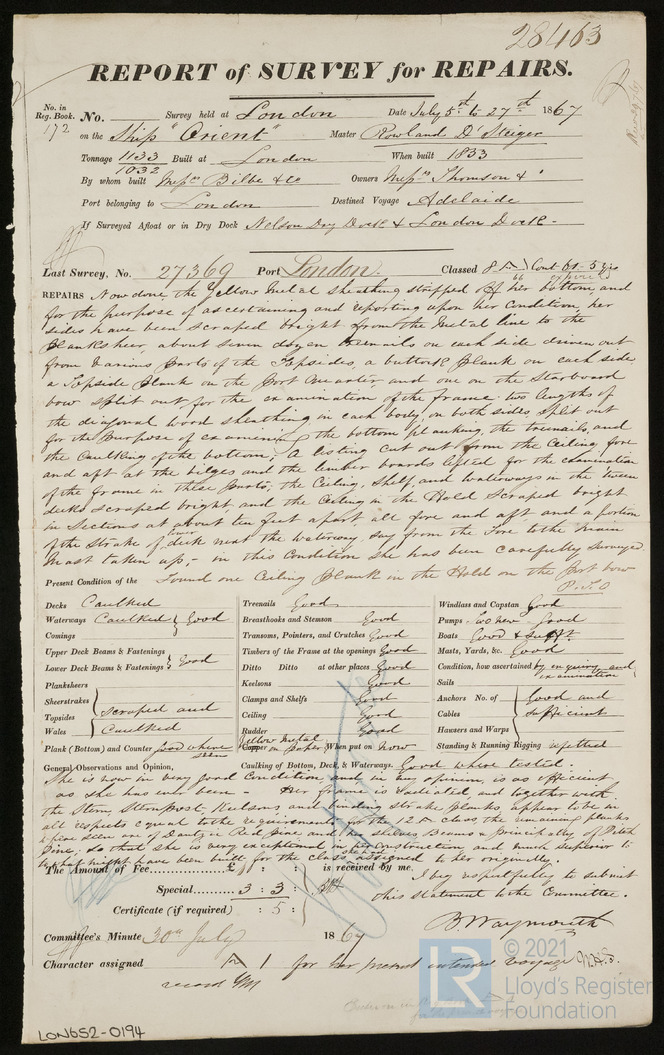 28463
REPORT of SURVEY for REPAIRS.
No. in Reg. Book. No. Survey held at London Date July 5th to 27th 1867
172 on the Ship "Orient" Master Rowland D' Steiger
Tonnage 1133 Built at London When built 1853
1032
By whom built Messrs Bilbe & Co Owners Messrs Thomson &
Port belonging to London Destined Voyage Adelaide
If Surveyed Afloat or in Dry Dock Nelson Dry Dock & London Dock
Last Survey, No. 27369 Port London. Classed 8 A Cont 61. 5 yrs
66 expired
REPAIRS Now done, the Yellow Metal sheathing stripped off her bottom and
for the purpose of ascertaining and reporting upon her Condition, her
sides have been scraped bright from the Metal line to the
Planksheer, about seven dozen treenails on each side driven out
from various parts of the Topsides, a buttock plank on each side
a Topside plank on the Port Quarter and one on the Starboard
bow split out for the examination of the frame. two lengths of
the diagonal wood sheathing in each body, on both sides split out
for the purpose of examening the bottom planking, the treenails, and
the Caulking of the bottom; A listing cut out from the Ceiling fore
and aft at the bilges and the limber boards lifted for the examination
of the frame in these parts; the Ceiling, Shelf, and waterways in the 'tween
decks scraped bright, and the Ceiling in the Hold scraped bright
in Sections at about ten feet apart all fore and aft and a portion
of the strake of lower deck next the waterway, say from the Fore to the Main
Mast taken up;- in this Condition she has been carefully surveyed
Present Condition of the Found one Ceiling plank in the Hold on the Port bow
P.T.O
Decks Caulked
Waterways Caulked } Good
Comings
Upper Deck Beams & Fastenings
Lower Deck Beams & Fastenings } Good
Planksheers
Sheerstrakes
Topsides scraped and
Wales Caulked
Plank (Bottom) and Counter good where seen
Treenails Good
Breasthooks and Stemson Good
Transoms, Pointers, and Crutches Good
Timbers of the Frame at the openings Good
Ditto Ditto at other places Good
Keelsons Good
Clamps and Shelfs Good
Ceiling Good
Rudder Good
Yellow Metal
Copper on Paper When put on Now
Caulking of Bottom, Deck, & Waterways. Good where tested.
Windlass and Capstan Good
Pumps - two new - Good
Boats Good & sufft
Masts, Yards, &c. Good
Condition, how ascertained by enquiry and examination
Sails
Anchors No. of Good and
Cables sufficient
Hawsers and Warps
Standing & Running Rigging refitted
General Observations and Opinion,
She is now in very good Condition, and in my opinion, is as efficient
as she has ever been - Her frame is and together with
the Stem Sternpost, Keelsons and binding strake planks, appear to be in
all respects equal to the requirements for the 12 A class, the remaining planks
where seen are of Dantzic Red Pine, and the shelves Beams &c principally of Pitch
Pine, so that she is very exceptional in her construction and much superior to
what might have been built for the class assigned to her originally.
The Amount of Fee............£ : : is received by me.
Special.......... 3 : 3 :
Certificate (if required) : 5 :
I beg respectfully to submit
this statement to the Committee.
B. Waymouth
Committee's Minute 30th July 1867
Character assigned A 1 for her present intended voyage
record YM
© 2021
LR
Lloyd's Register
Foundation
LON652-0194